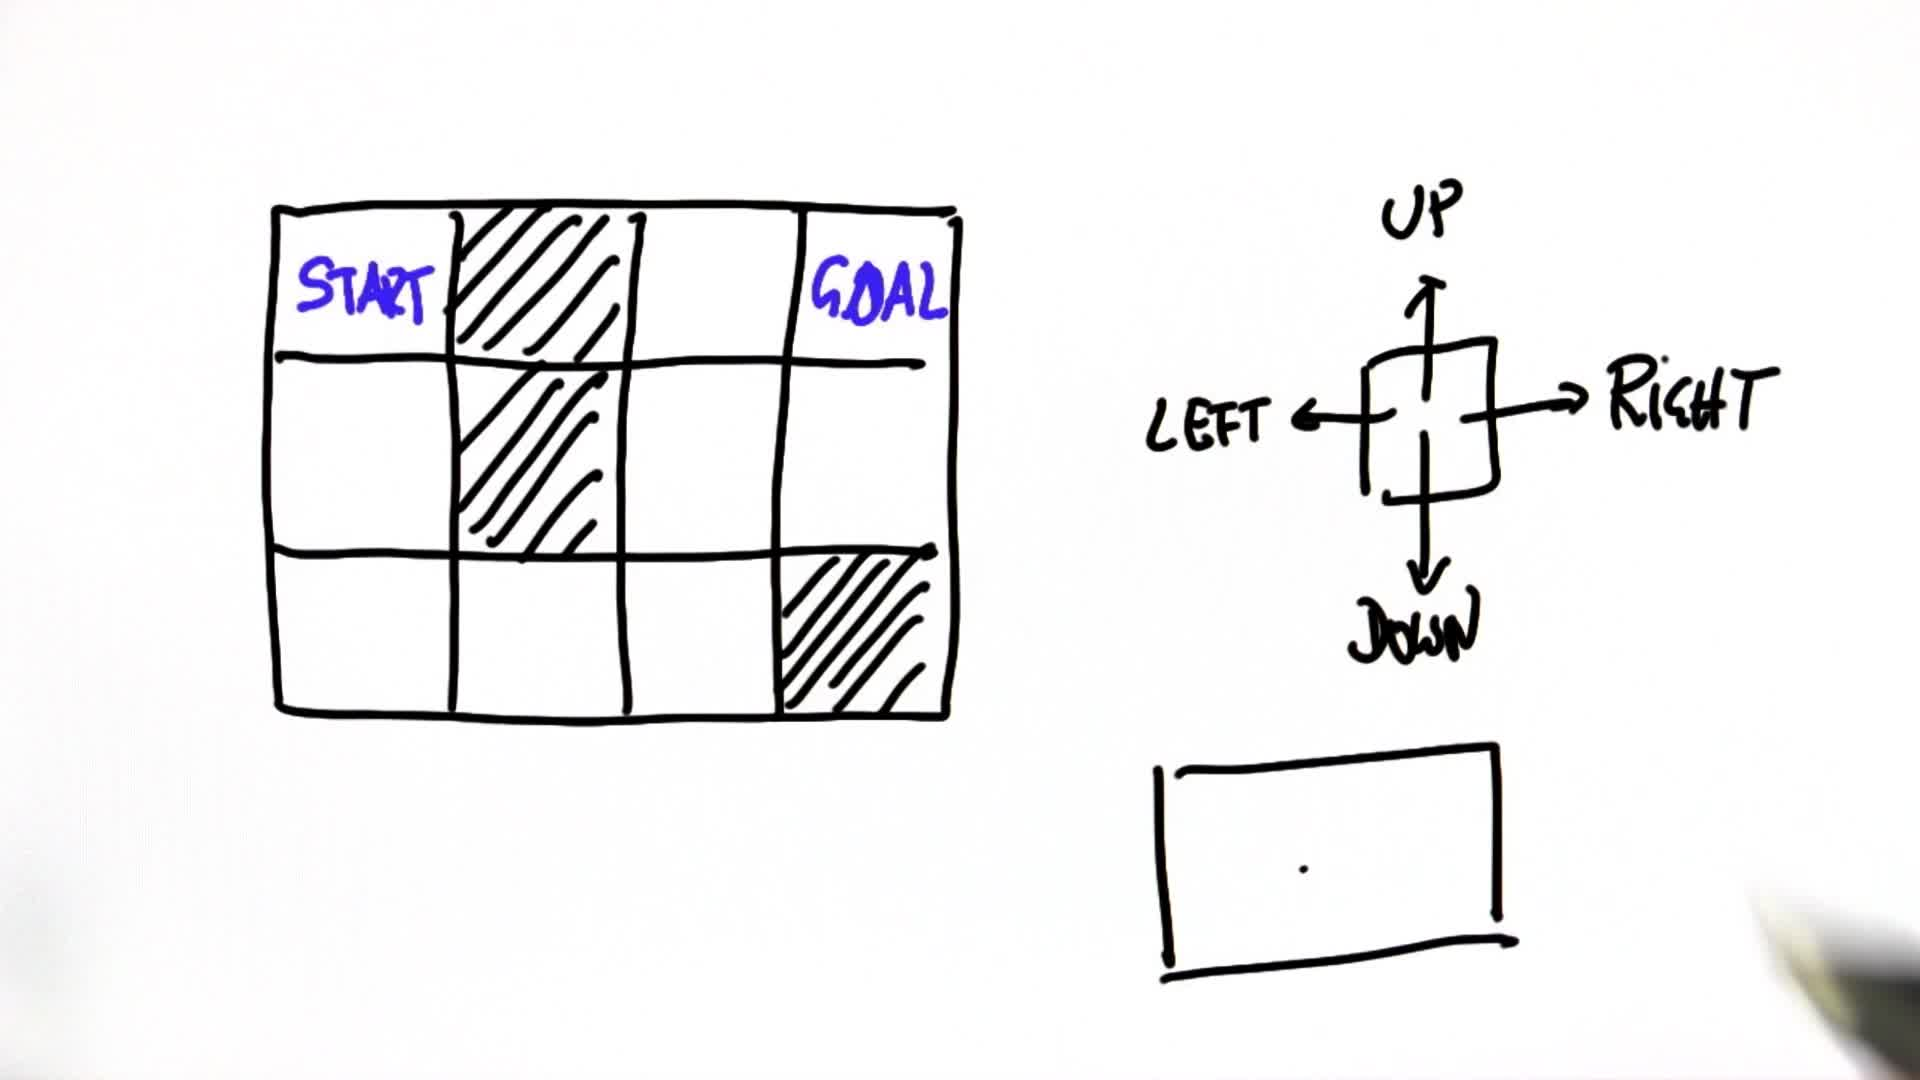 START
GOAL
UP
LEFT
RIGHT
DOWN